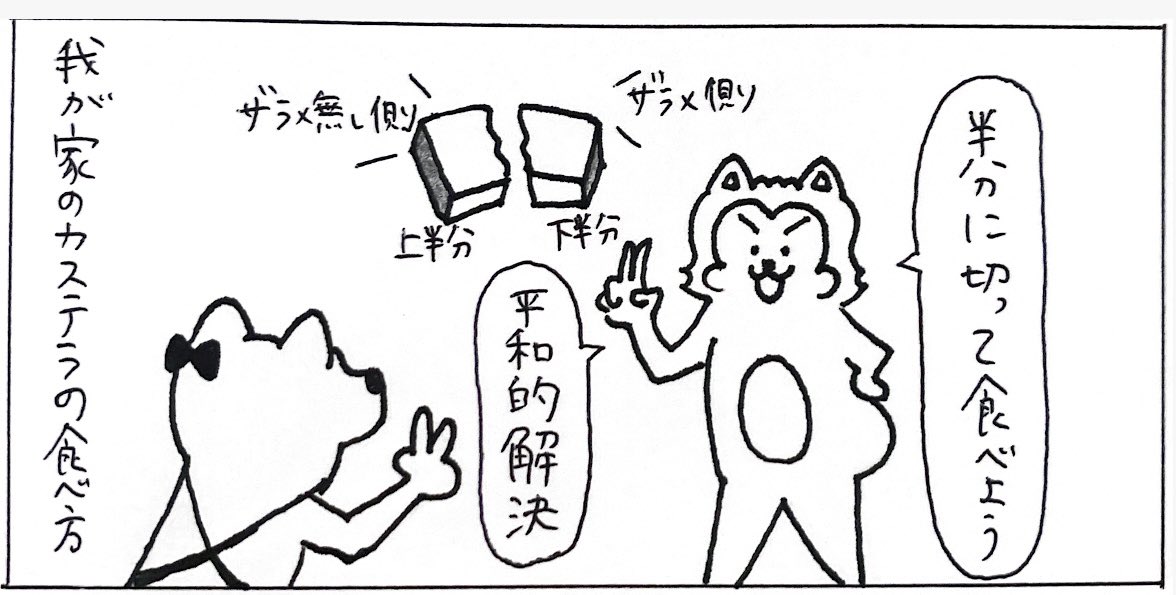 半分に切って食べよう
ザラメ側
ザラメ無し側
下半分
上半分
平和的解決
我が家のカステラの食べ方